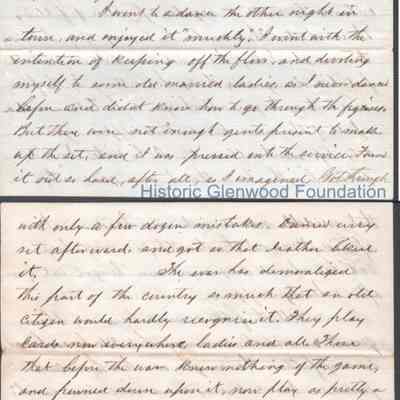 I went to a dance the other night in
town, and enjoyed it "muchly." I went with the
intention of keeping off the floor, and devoting
myself to some old married ladies, as I never danced
before and didnt know how to go through the figures.
But there were not enough gents present to make
up the set, and I was pressed into the service. Found
it not so hard, after all, as I imagined. Got through
Historic Glenwood Foundation
with only a few dozen mistakes. Danced every
set afterwards and got so that rather liked
it. The war has demoralized
this part of the country so much that an old
citizen would hardly recognize it. They play
Cards now everywhere, ladies and all. Those
that before the war knew nothing of the game,
and frowned down upon it, now play as pretty a